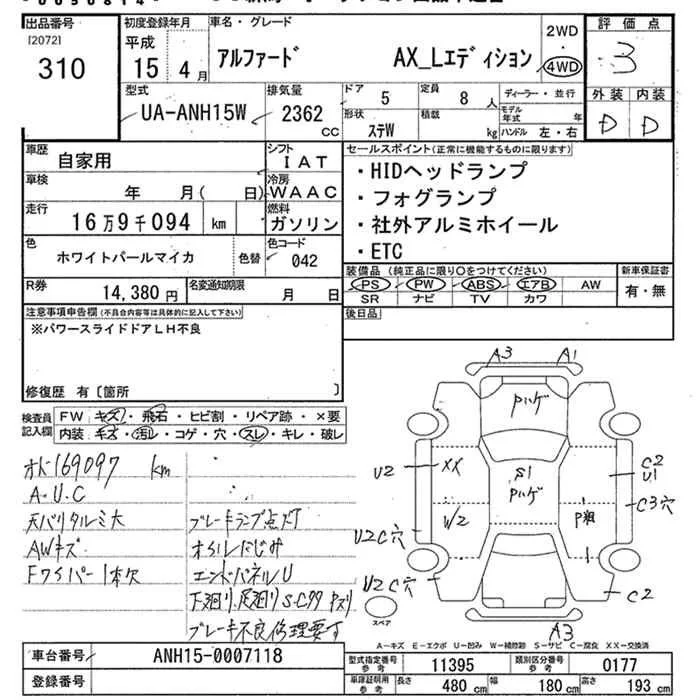 出品番号
[2072]
310
初度登録年月
平成
15年 4月
車名・グレード
アルファード AX_Lエディション
2WD
・
4WD
評価点
3
外装 内装
D D
型式
UA-ANH15W
排気量
2362 CC
ドア 5
定員 8人
形状 ステW
積載 kg
ディーラー・並行
モデル年式 年
ハンドル 左・右
車歴
自家用
シフト
IAT
車検
年 月(日)
冷房
WAAC
走行
16万9千094 km
燃料
ガソリン
色
ホワイトパールマイカ
色替
色コード
042
R券
14,380円
名変通知期限
月 日
セールスポイント(正常に機能するものに限ります)
・HIDヘッドランプ
・フォグランプ
・社外アルミホイール
・ETC
装備品(純正品に限り○をつけてください)
PS PW ABS エアB AW
SR ナビ TV カワ
新車保証書
有・無
後日品
注意事項申告欄(不具合内容等は具体的に記入して下さい)
※パワースライドドアLH不良
修復歴 有〔箇所 〕
検査員記入欄
FW キズ・飛石・ヒビ割・リペア跡・×要
内装 キズ・汚レ・コゲ・穴・スレ・キレ・破レ
オド169097 km
A・U・C
天バリタルミ大
AWキズ
Fワイパー1本欠
ブレーキランプ点灯
オイルにじみ
エンドパネルU
下廻り、足廻りS・Cサ
ブレーキ不良修理要す
A3 A1
Pハゲ
U2 XX
S1
Pハゲ
C2
U1
W2
P粗
C3穴
U2C穴
U2C穴
C2
A3
スペア
A-キズ E-エクボ U-凹み W-補修跡 S-サビ C-腐食 XX-交換済
車台番号 ANH15-0007118
登録番号
型式指定番号 参考 11395
類別区分番号 参考 0177
車庫証明用 参考 長さ 480cm 幅 180cm 高さ 193cm